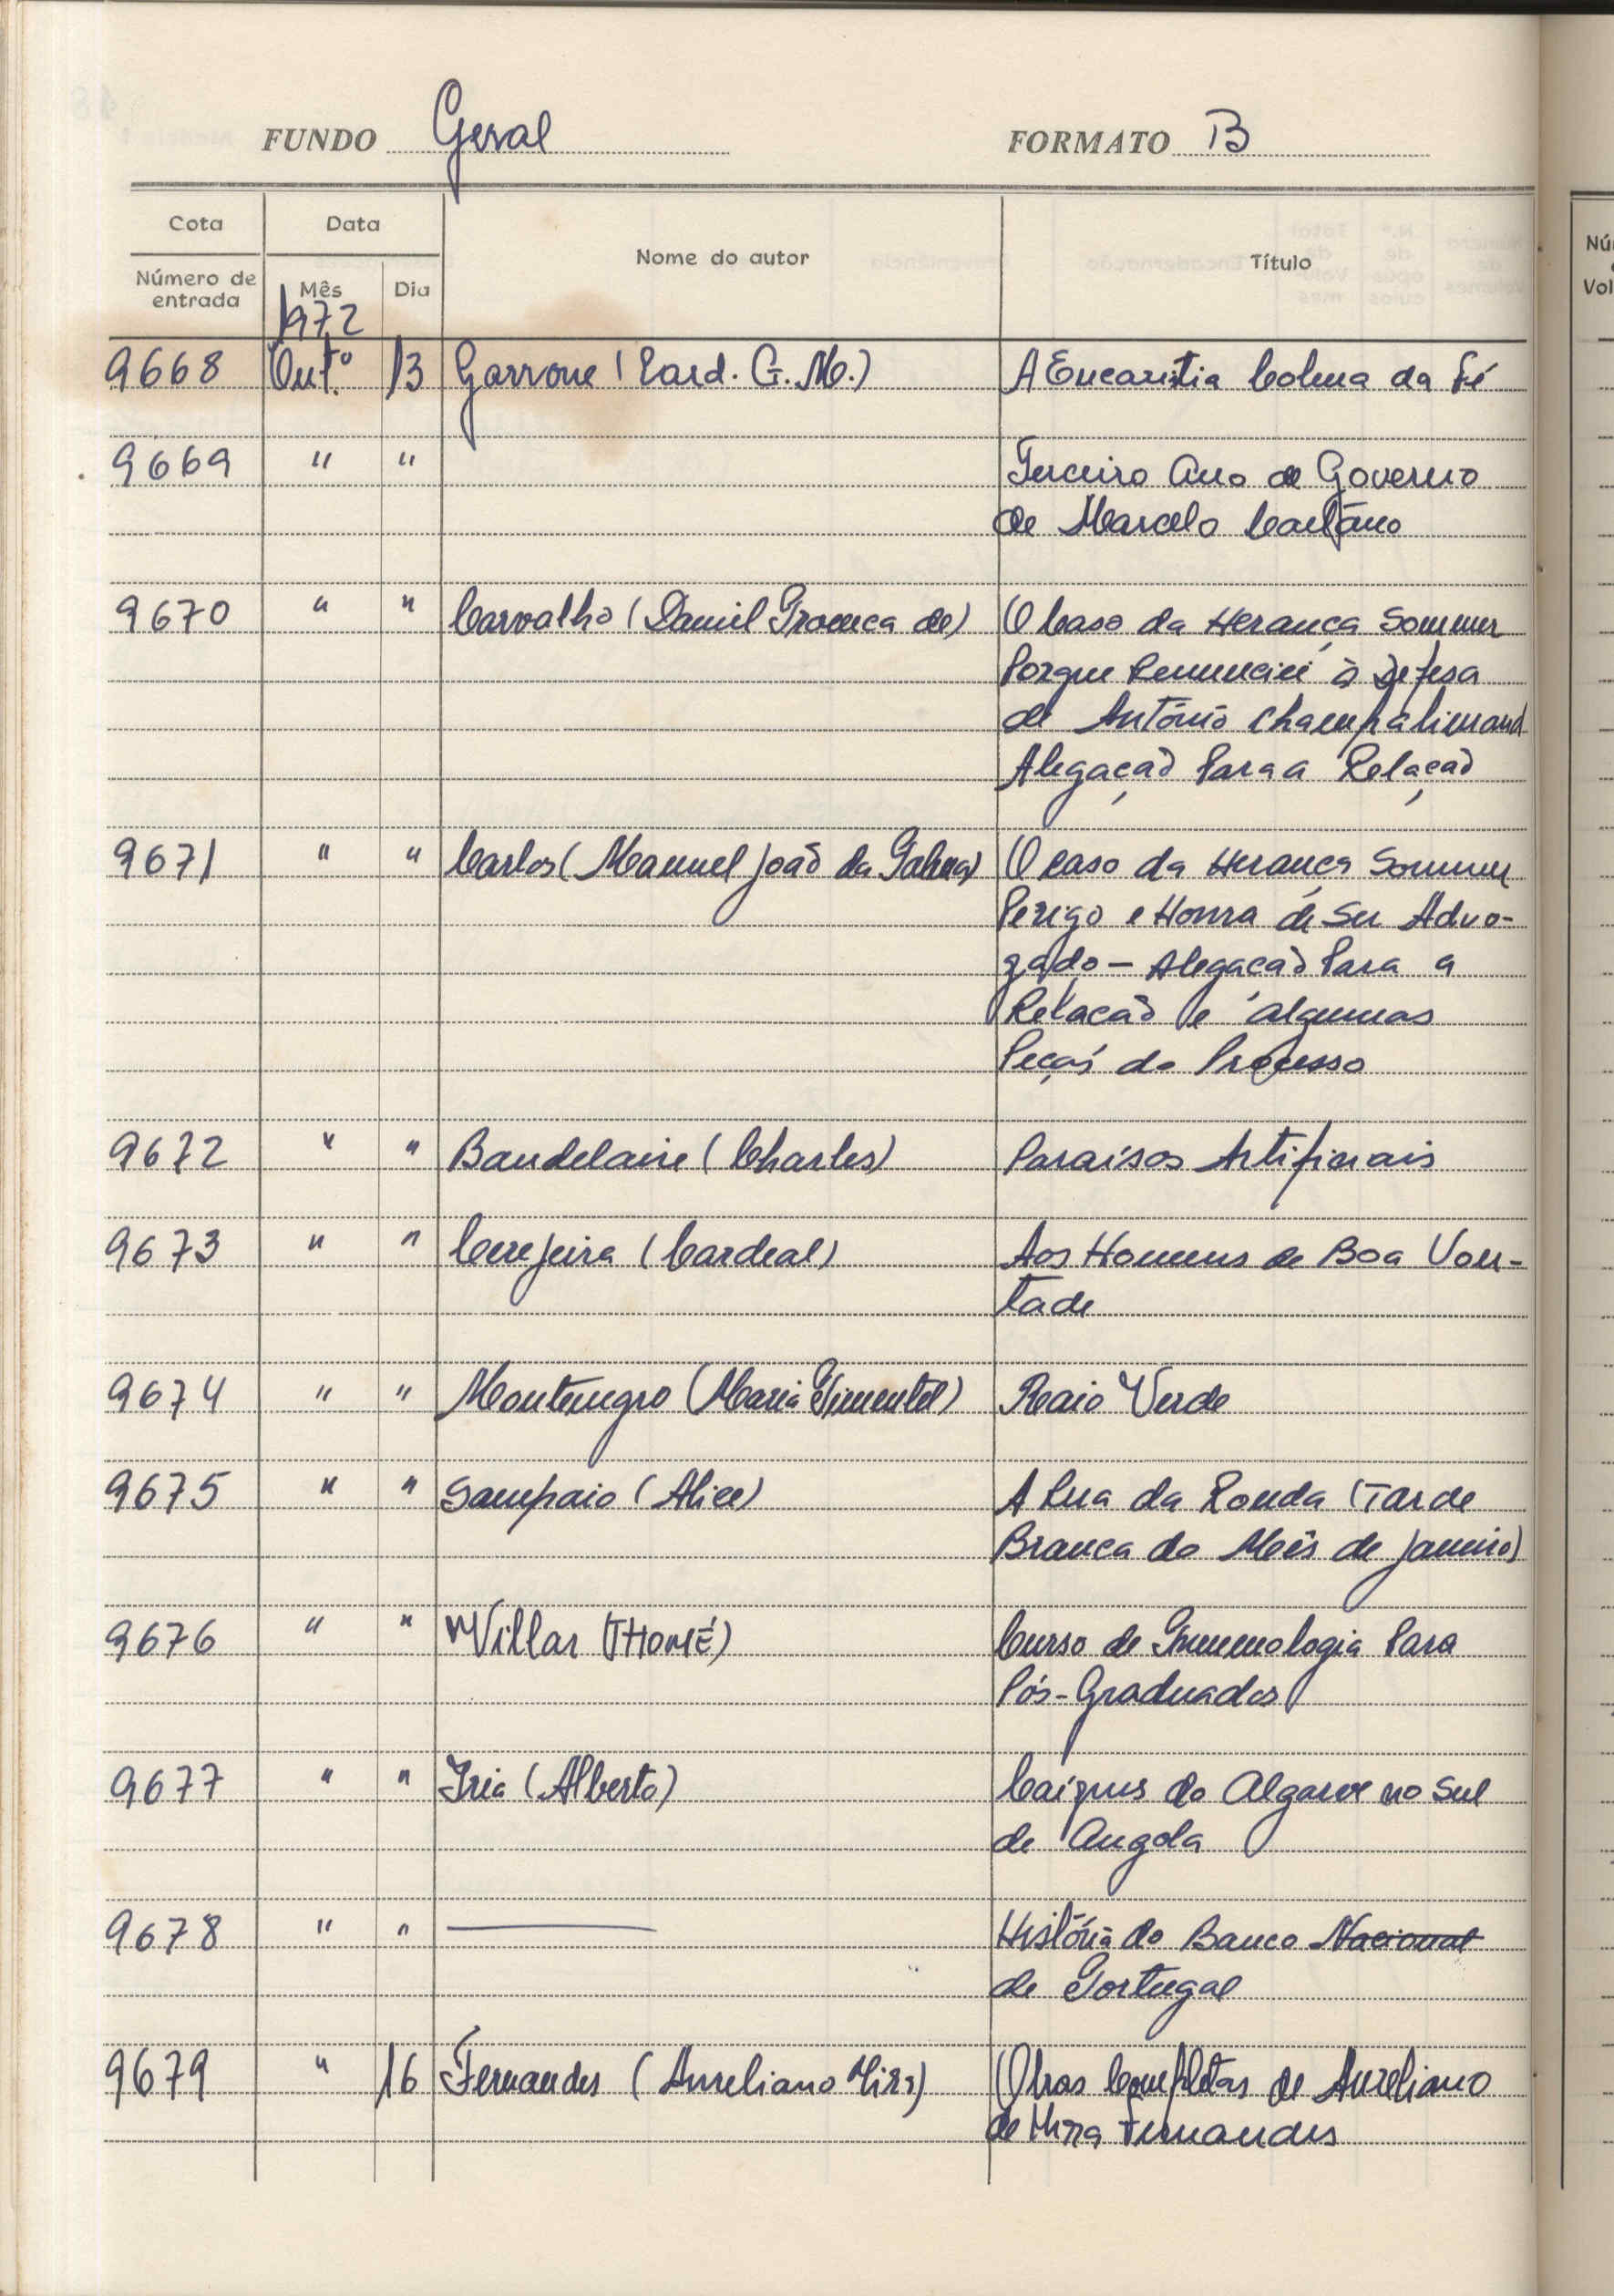 FUNDO Geral FORMATO B
Cota Data Nome do autor Título
Número de entrada Mês Dia
1972
9668 Out.º 13 Garrone (Card. G. M.) A Eucaristia Coluna da Fé
9669 " " Terceiro Ano de Governo
de Marcelo Caetano
9670 " " Carvalho (Daniel Proença de) O Caso da Herança Sommer
Porque Renunciei à Defesa
de António Champalimaud
Alegação Para a Relação
9671 " " Carlos (Manuel João da Palma) O caso da Herança Sommer
Perigo e Honra de Ser Advo-
gado – Alegação Para a
Relação e algumas
Peças do Processo
9672 " " Baudelaire (Charles) Paraísos Artificiais
9673 " " Cerejeira (Cardeal) Aos Homens de Boa Von-
tade
9674 " " Montenegro (Maria Pimentel) Raio Verde
9675 " " Sampaio (Alice) A Rua da Ronda (Tarde
Branca do Mês de Janeiro)
9676 " " Villar (THOMÉ) Curso de Imunologia Para
Pós-Graduados
9677 " " Iria (Alberto) Caíques do Algarve no Sul
de Angola
9678 " " — História do Banco Nacional
de Portugal
9679 " 16 Fernandes (Aureliano Mira) Obras Completas de Aureliano
de Mira Fernandes
Nú
Vol